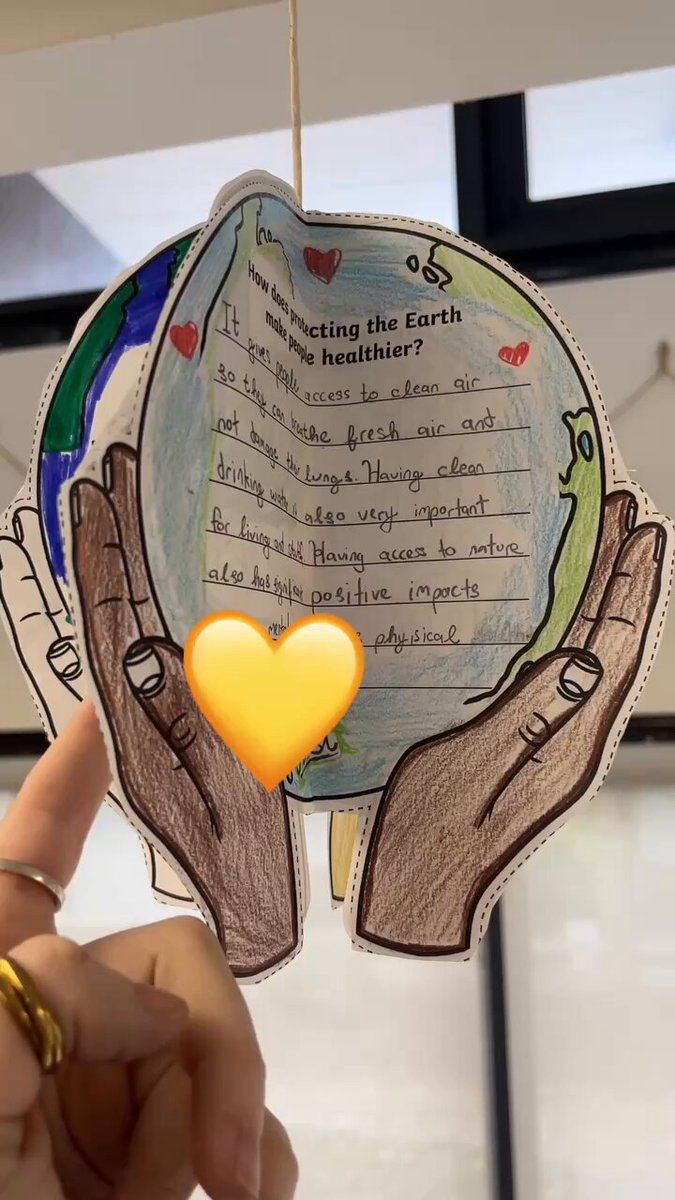 How does protecting the Earth
make people healthier?
It gives people access to clean air
so they can breathe fresh air and
not damage their lungs. Having clean
drinking water is also very important
for living and Having access to nature
also has positive impacts
phyisical